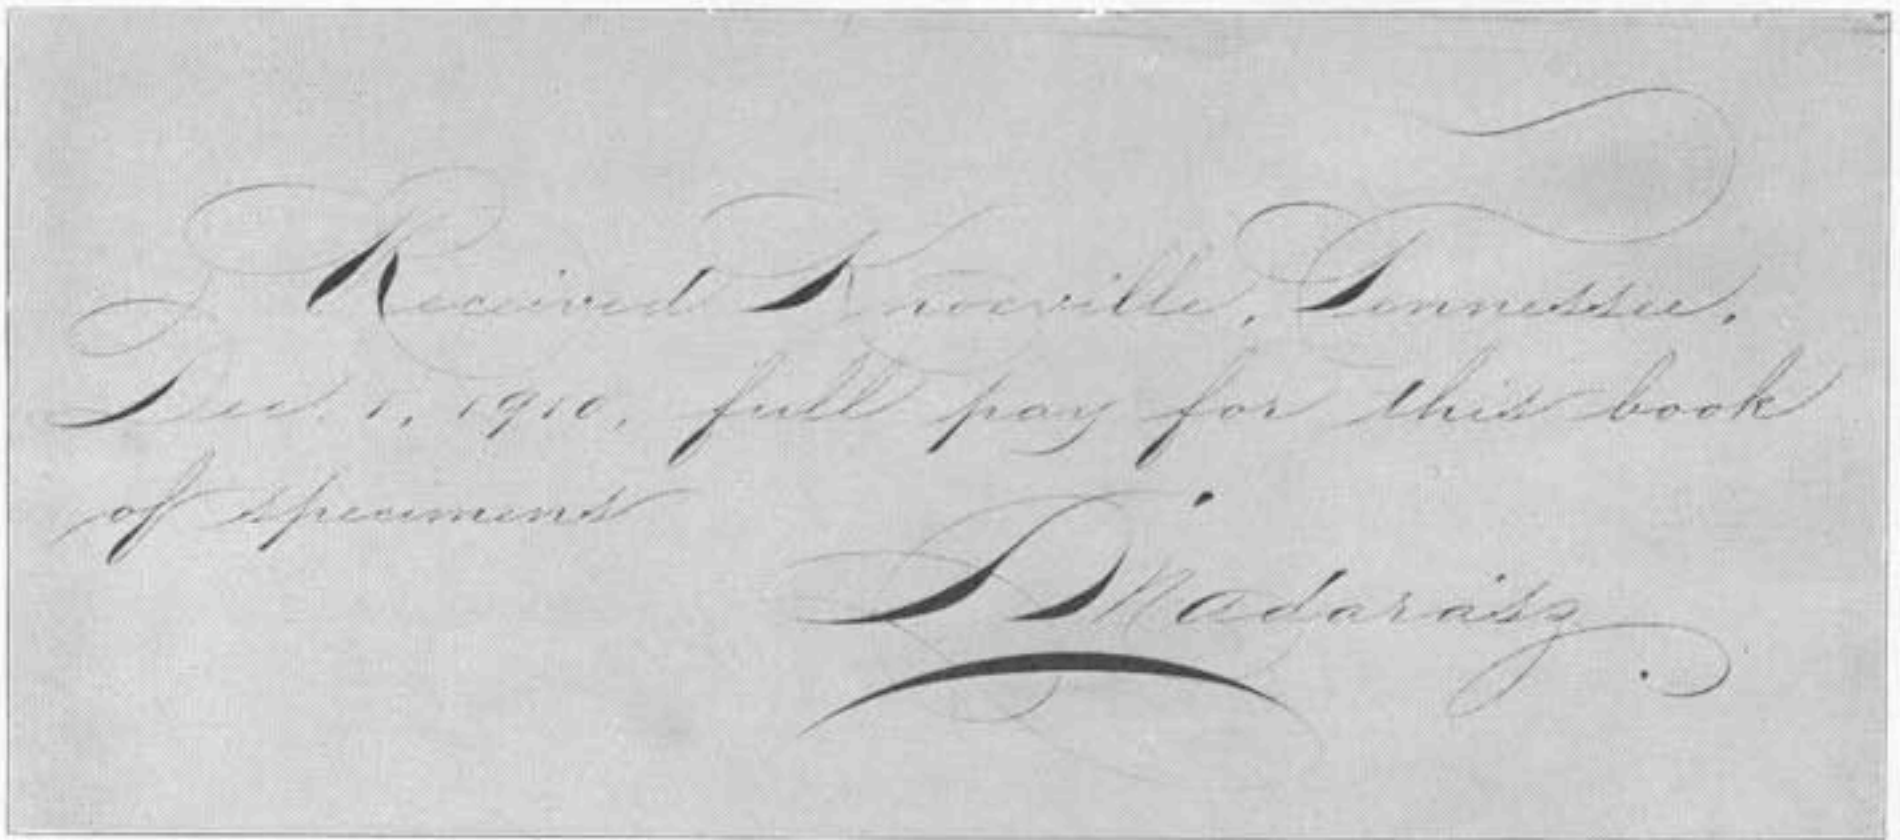 Received Knoxville, Tennessee,
Dec. 1, 1910, full pay for this book
of specimens
L Madarász.